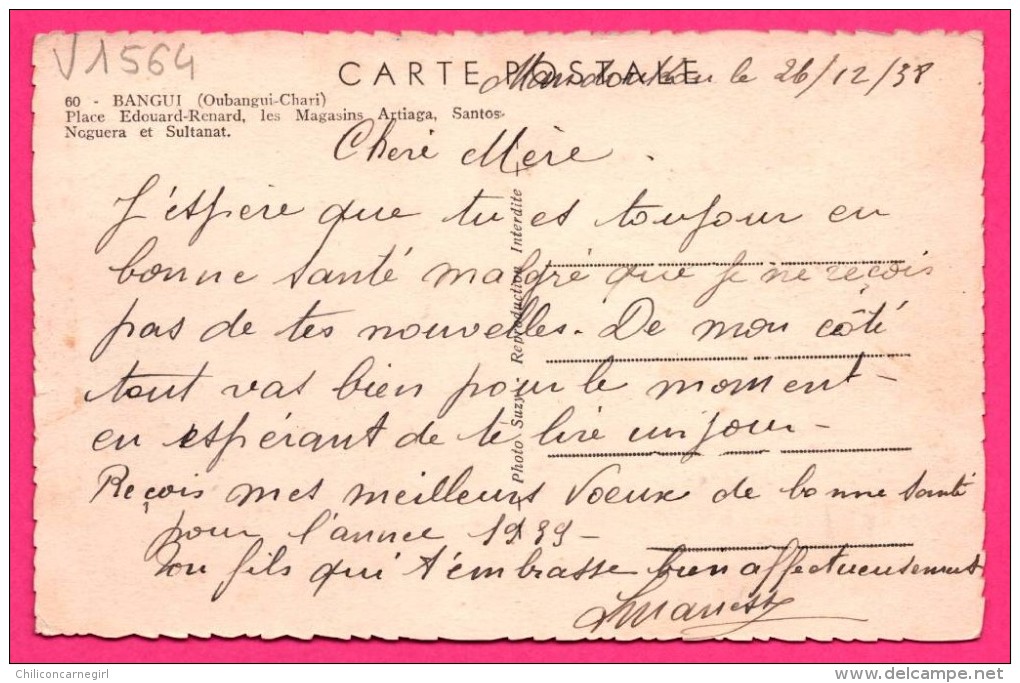 V1564
CARTE POSTALE
le 26/12/38
60 - BANGUI (Oubangui-Chari)
Place Edouard-Renard, les Magasins Artiaga, Santos-
Noguera et Sultanat.
Cheré Mère.
J'éspère que tu es toujour en
bonne santé malgré que je ne reçois
pas de tes nouvelles. De mon côté
tout vas bien pour le moment -
en espérant de te lire un jour -
Reçois mes meilleurs Voeux de bonne santé
pour l'année 1939 -
Ton fils qui t'embrasse bien affectueusement
Photo Suzy - Reproduction Interdite
Chiliconcarnegirl
www.delcampe.net